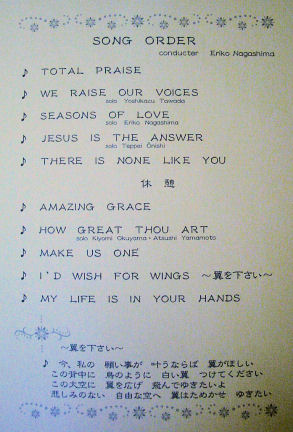 SONG ORDER
conducter Eriko Nagashima
♪ TOTAL PRAISE
♪ WE RAISE OUR VOICES
solo Yoshikazu Tawada
♪ SEASONS OF LOVE
solo Eriko Nagashima
♪ JESUS IS THE ANSWER
solo Teppei Onishi
♪ THERE IS NONE LIKE YOU
休 憩
♪ AMAZING GRACE
♪ HOW GREAT THOU ART
solo Kiyomi Okuyama・Atsushi Yamamoto
♪ MAKE US ONE
♪ I'D WISH FOR WINGS ～翼を下さい～
♪ MY LIFE IS IN YOUR HANDS
～翼を下さい～
♪ 今、私の 願い事が 叶うならば 翼がほしい
この背中に 鳥のように 白い翼 つけてください
この大空に 翼を広げ 飛んでゆきたいよ
悲しみのない 自由な空へ 翼はためかせ ゆきたい